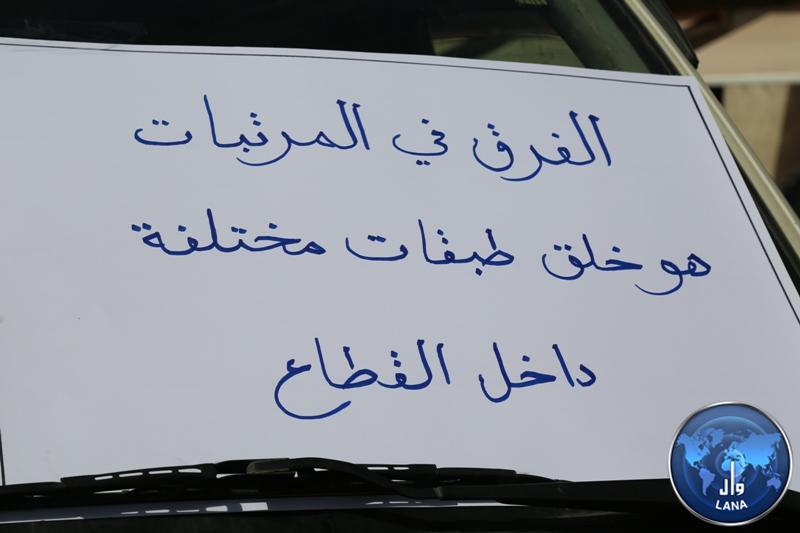 الفرق في المرتبات
هو خلق طبقات مختلفة
داخل القطاع
وال
LANA